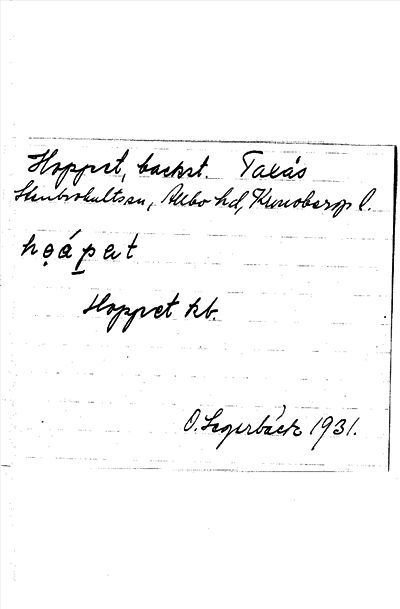 Hoppet, backst. Taxås
Stenbrohults sn, Allbo hd, Kronobergs l.
hǫápat
Hoppet kb.
O. Segerbäck 1931.